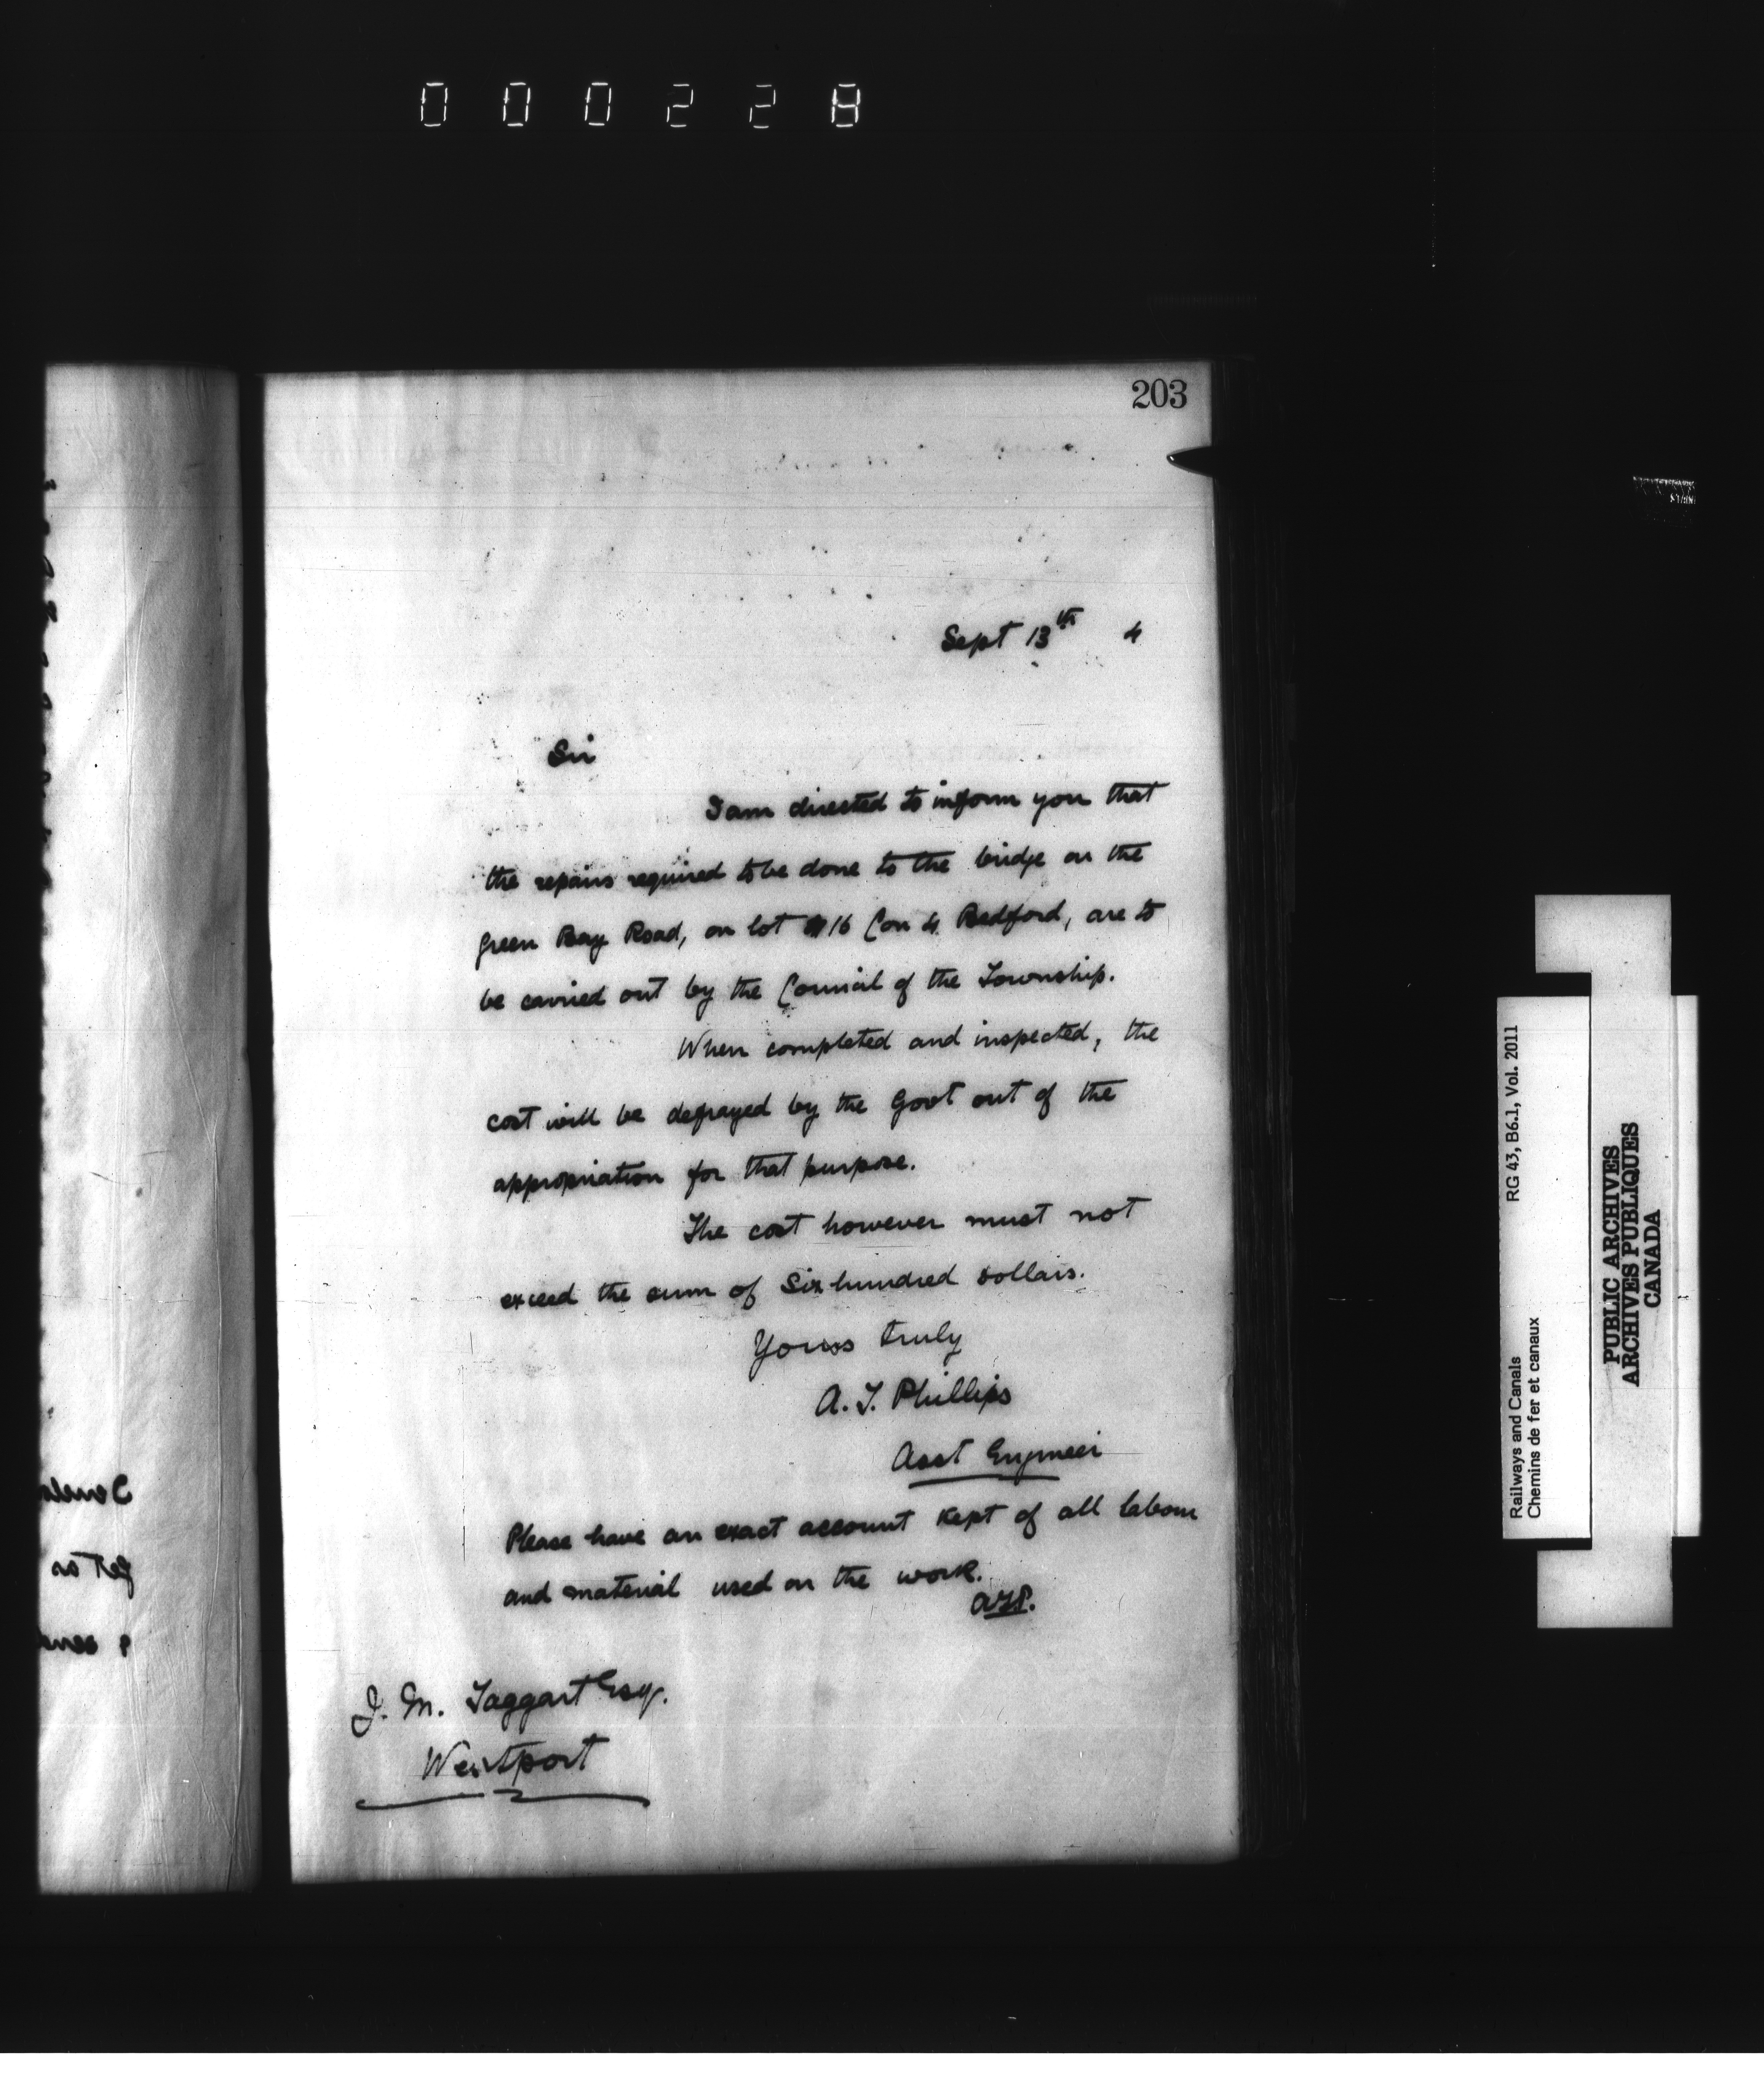 000228
203
Sept 13th 4
Sir
I am directed to inform you that
the repairs required to be done to the bridge on the
Green Bay Road, on lot 16 Con 4 Bedford, are to
be carried out by the Council of the Township.
When completed and inspected, the
cost will be defrayed by the Govt out of the
appropriation for that purpose.
The cost however must not
exceed the sum of Six hundred dollars.
Yours truly
A. T. Phillips
Asst Engineer
Please have an exact account kept of all labour
and material used on the work.
A.T.P.
J. M. Taggart Esq.
Westport
Railways and Canals
Chemins de fer et canaux
RG 43, B6.1, Vol. 2011
PUBLIC ARCHIVES
ARCHIVES PUBLIQUES
CANADA